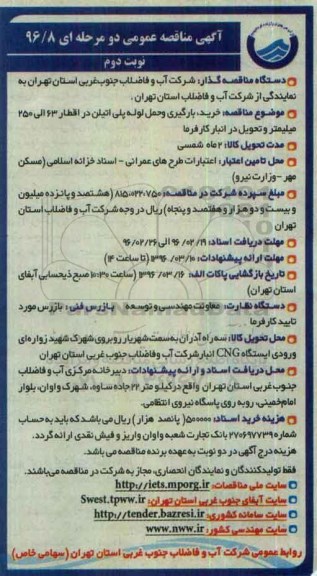 آگهی مناقصه عمومی دو مرحله ای ۹۶/۸
نوبت دوم
دستگاه مناقصه گذار: شرکت آب و فاضلاب جنوب غربی استان تهران به
نمایندگی از شرکت آب و فاضلاب استان تهران.
موضوع مناقصه: خرید، بارگیری وحمل لوله پلی اتیلن در اقطار ۶۳ الی ۲۵۰
میلیمتر و تحویل در انبار کارفرما
مدت تحویل کالا: ۲ماه شمسی
محل تامین اعتبار: اعتبارات طرح های عمرانی - اسناد خزانه اسلامی (مسکن
مهر - وزارت نیرو)
مبلغ سپرده شرکت در مناقصه: ۸۱۵،۰۲۲،۷۵۰ (هشتصد و پانزده میلیون
و بیست و دو هزار و هفتصد و پنجاه) ریال در وجه شرکت آب و فاضلاب استان
تهران
مهلت دریافت اسناد: ۹۶/۰۲/۱۹ الی ۹۶/۰۲/۲۶
مهلت ارائه پیشنهادات: ۱۳۹۶/۰۳/۱۰ (تا ساعت ۱۴)
تاریخ بازگشایی پاکات الف: ۱۳۹۶/۰۳/۱۶ (ساعت ۱۰:۳۰ صبح ذیحسابی آبفای
استان تهران)
دستگاه نظارت: معاونت مهندسی و توسعه بازرس فنی: بازرس مورد
تایید کارفرما
محل تحویل کالا: سه راه آدران به سمت شهریار روبروی شهرک شهید زواره ای
ورودی ایستگاه CNG انبار شرکت آب وفاضلاب جنوب غربی استان تهران
محل دریافت اسناد و ارائه پیشنهادات: دبیرخانه مرکزی آب و فاضلاب
جنوب غربی استان تهران واقع در کیلو متر ۲۲ جاده ساوه، شهرک واوان، بلوار
امام خمینی، روبه روی پاسگاه نیروی انتظامی.
هزینه خرید اسناد: ۵۰۰۰۰۰ (پانصد هزار) ریال می باشد که باید به حساب
شماره ۲۷۰۶۹۷۷۳۹ بانک تجارت شعبه واوان واریز و فیش نقدی ارائه گردد.
هزینه درج آگهی در دو نوبت به عهده برنده مناقصه می باشد.
فقط تولیدکنندگان و نمایندگان انحصاری، مجاز به شرکت در مناقصه می باشند.
سایت ملی مناقصات: http://iets.mporg.ir
سایت آبفای جنوب غربی استان تهران: Swest.tpww.ir
سایت سامانه کشوری: http://tender.bazresi.ir
سایت مهندسی کشور: www.nww.ir
روابط عمومی شرکت آب و فاضلاب جنوب غربی استان تهران (سهامی خاص)